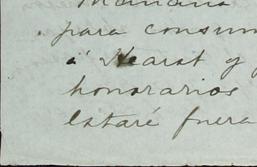 Mañana
para consum
á Hearst y
honorarios
Estaré fuera